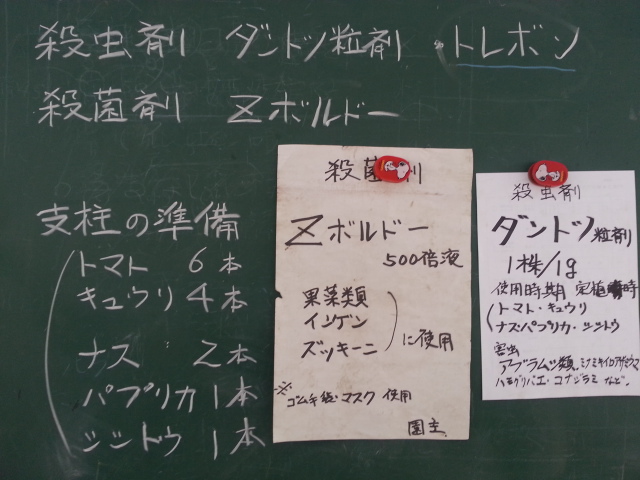 殺虫剤 ダントツ粒剤 ・トレボン
殺菌剤 Zボルドー
支柱の準備
トマト 6本
キュウリ 4本
ナス 2本
パプリカ 1本
シシトウ 1本
殺菌剤
Zボルドー
500倍液
果菜類
インゲン
ズッキーニ
に使用
※ゴム手袋・マスク 使用
園主
殺虫剤
ダントツ粒剤
1株/1g
使用時期 定植時
トマト・キュウリ
ナス・パプリカ・シシトウ
害虫
アブラムシ類、ミカンキイロアザミウマ
ハモグリバエ・コナジラミ など。